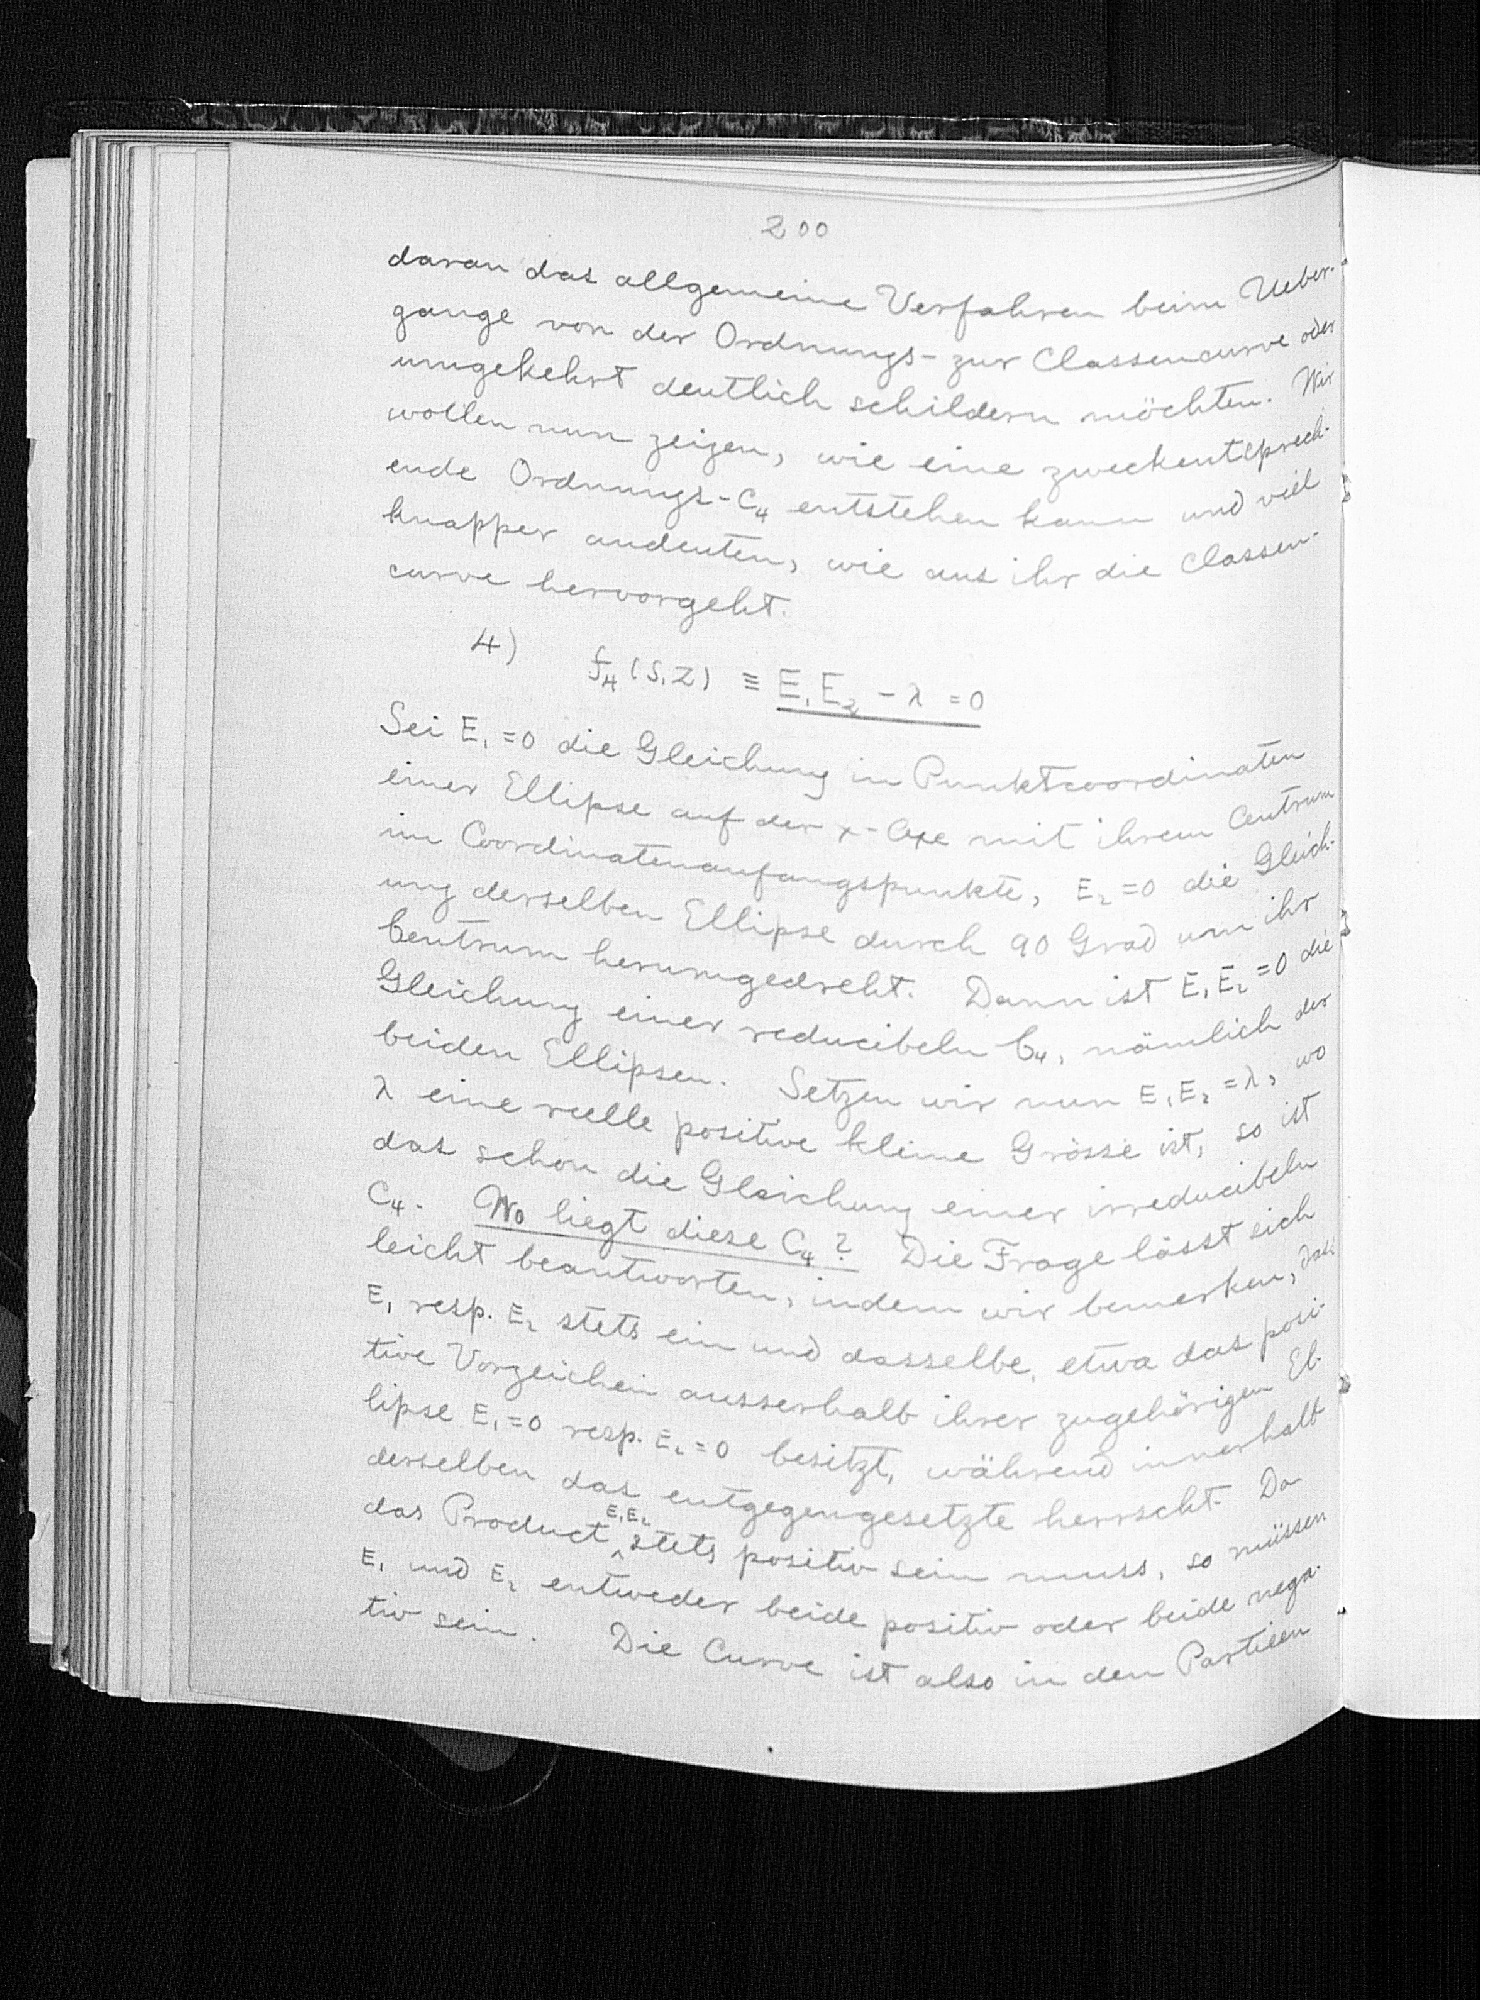 200
daran das allgemeine Verfahren beim Ueber-
gange von der Ordnungs- zur Classencurve oder
umgekehrt deutlich schildern möchten. Wir
wollen nun zeigen, wie eine zweckentsprech-
ende Ordnungs-C₄ entstehen kann und viel
knapper andeuten, wie aus ihr die Classen-
curve hervorgeht.
4) f₄(s,z) ≡ E₁E₂ - λ = 0
Sei E₁ = 0 die Gleichung in Punktcoordinaten
einer Ellipse auf der x-Axe mit ihrem Centrum
im Coordinatenanfangspunkte, E₂ = 0 die Gleich-
ung derselben Ellipse durch 90 Grad um ihr
Centrum herumgedreht. Dann ist E₁E₂ = 0 die
Gleichung einer reducibeln C₄, nämlich der
beiden Ellipsen. Setzen wir nun E₁E₂ = λ, wo
λ eine reelle positive kleine Grösse ist, so ist
das schon die Gleichung einer irreducibeln
C₄. Wo liegt diese C₄? Die Frage lässt sich
leicht beantworten, indem wir bemerken, dass
E₁ resp. E₂ stets ein und dasselbe, etwa das posi-
tive Vorzeichen ausserhalb ihrer zugehörigen El-
lipse E₁ = 0 resp. E₂ = 0 besitzt, während innerhalb
derselben das entgegengesetzte herrscht. Da
das Product E₁E₂ stets positiv sein muss, so müssen
E₁ und E₂ entweder beide positiv oder beide nega-
tiv sein. Die Curve ist also in den Partieen